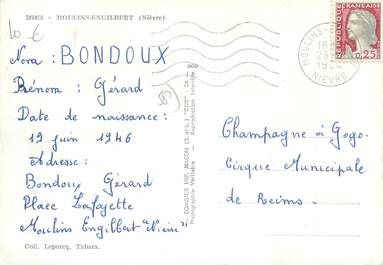 589858 - MOULINS-ENGILBERT (Nièvre)
10 €
Nom : BONDOUX
Prénom : Gérard
58
Date de naissance :
19 juin 1946
Adresse :
Bondoux Gérard
Place Lafayette
Moulins Engilbert "Nièvre"
Coll. Leporcq, Tabacs.
COMBIER IMP. MACON (S.-et-L.) "CIM"
Photographie Véritable - Reproduction Interdite
MOULINS-
18
NIEVRE
REPUBLIQUE
FRANÇAISE
0,25
Champagne à Gogo.
Cirque Municipale
de Reims.